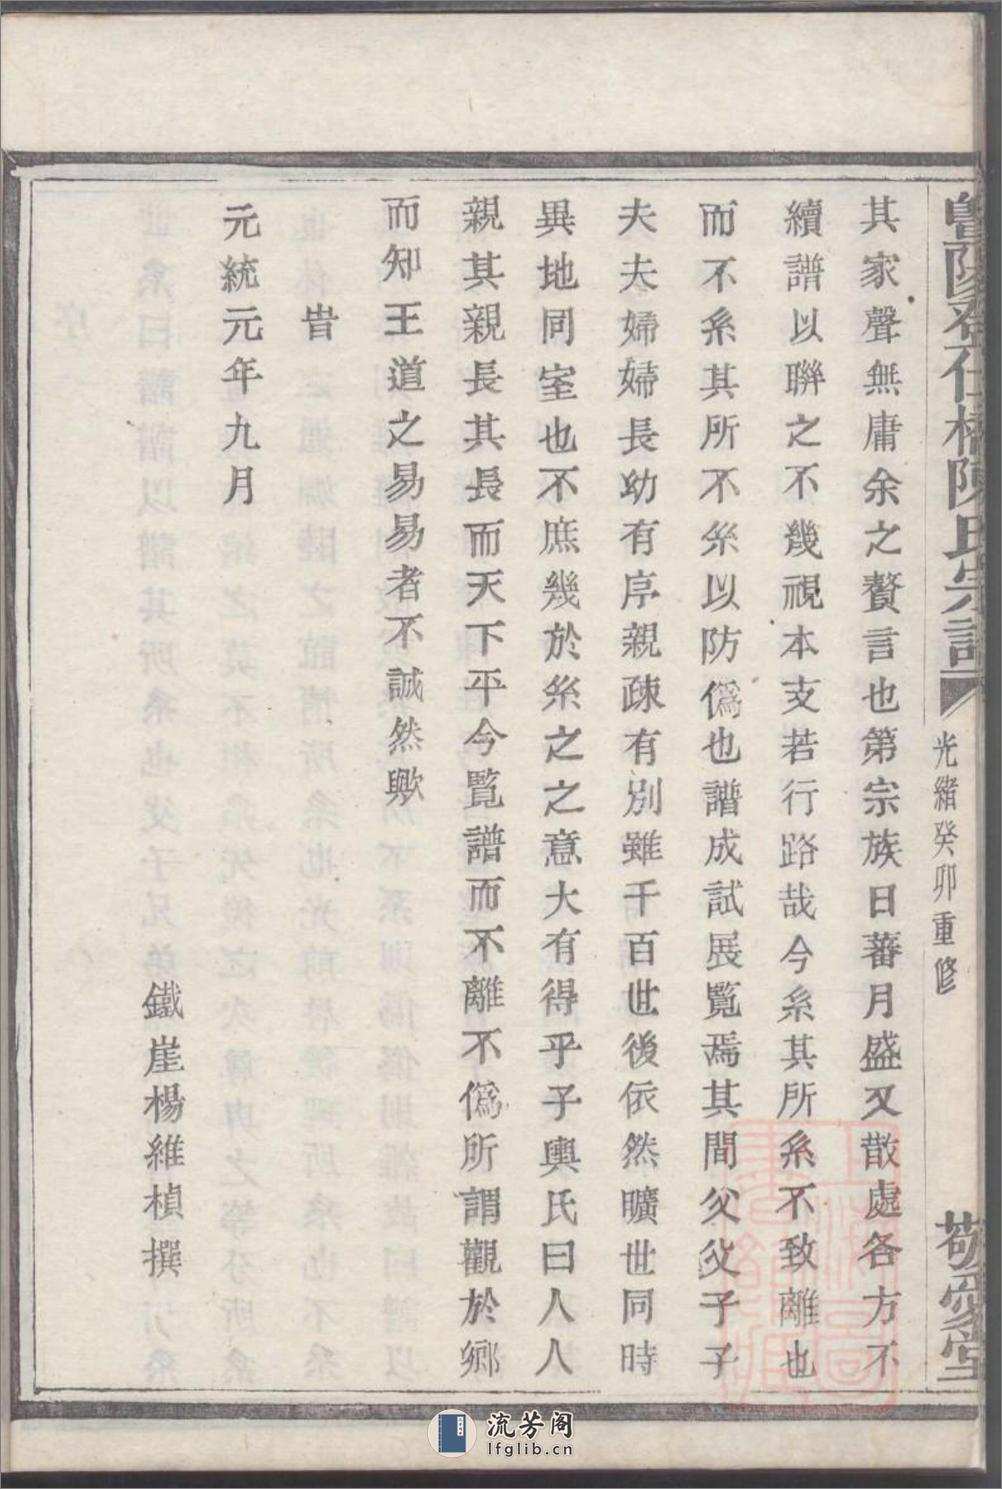 其家聲無庸余之贅言也第宗族日蕃月盛又散處各方不
續譜以聯之不幾視本支若行路哉今糸其所糸不致離也
而不糸其所不糸以防僞也譜成試展覧焉其間父父子子
夫夫婦婦長幼有序親疎有別雖千百世後依然曠世同時
異地同室也不庶幾於糸之之意大有得乎子輿氏曰人人
親其親長其長而天下平今覧譜而不離不僞所謂觀於鄉
而知王道之易易者不誠然歟
旹
元統元年九月
鐵崖楊維楨撰
暨陽 橋陳氏宗譜
光緒癸卯重修
敬愛堂
流芳阁
lfglib.cn